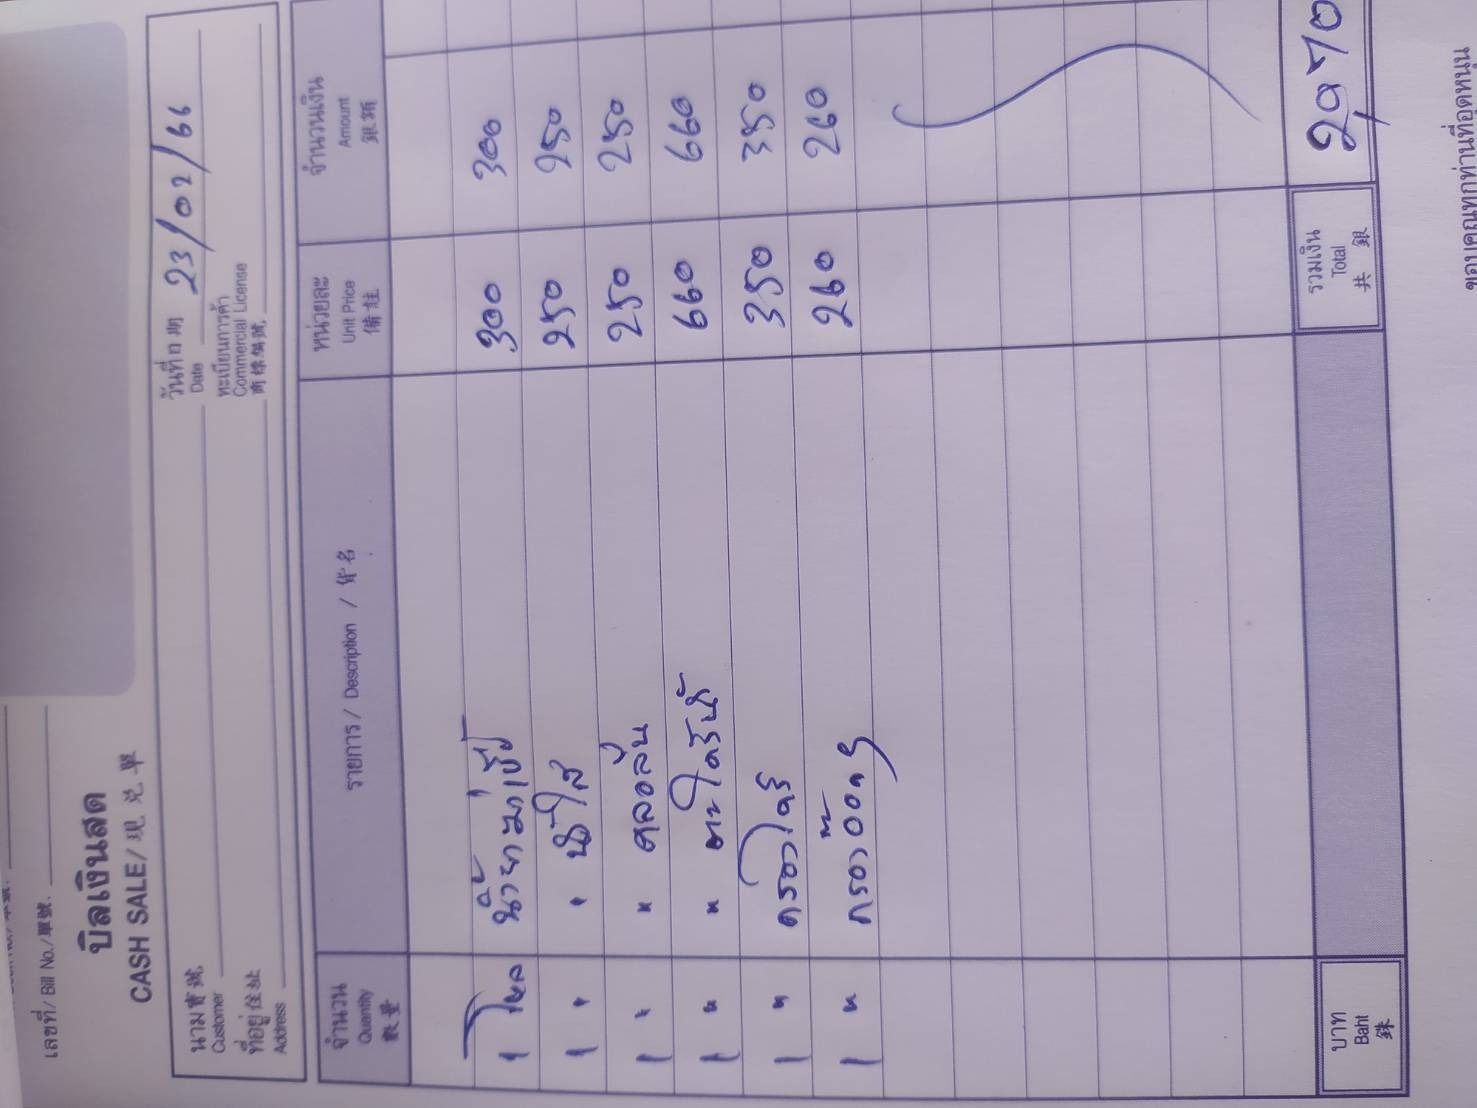 เลขที่/ Bill No./單號.
บิลเงินสด
CASH SALE/現兌單
วันที่日期 23/02/66
Date
นาม寶號
Customer
ทะเบียนการค้า
Commercial License
商標個號
ที่อยู่住址
Address
จำนวน รายการ / Description / 貨名 หน่วยละ จำนวนเงิน
Quantity Unit Price Amount
數量 備註 銀額
1 โหล น้ำยาฆ่าเชื้อ 300 300
1 " " 250 250
1 " " คลอลีน 250 250
1 " " ตะไคร้น้ำ 660 660
1 " 350 350
1 " 260 260
บาท รวมเงิน 2,970
Baht Total
銖 共銀
ขอบคุณทุกท่านที่อุดหนุน